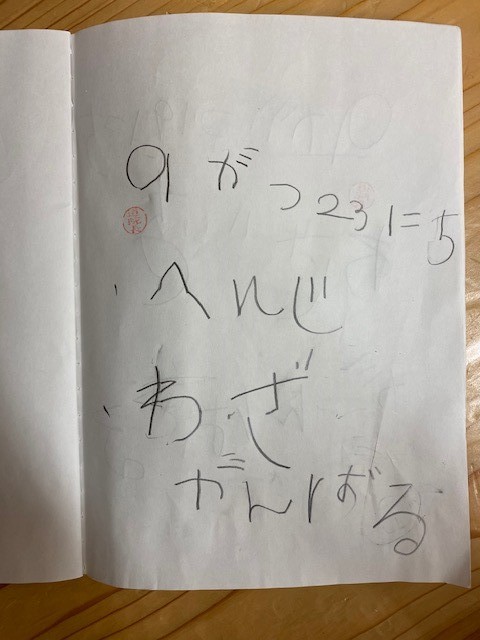 9がつ23にち
・へんじ
・わざ
がんばる